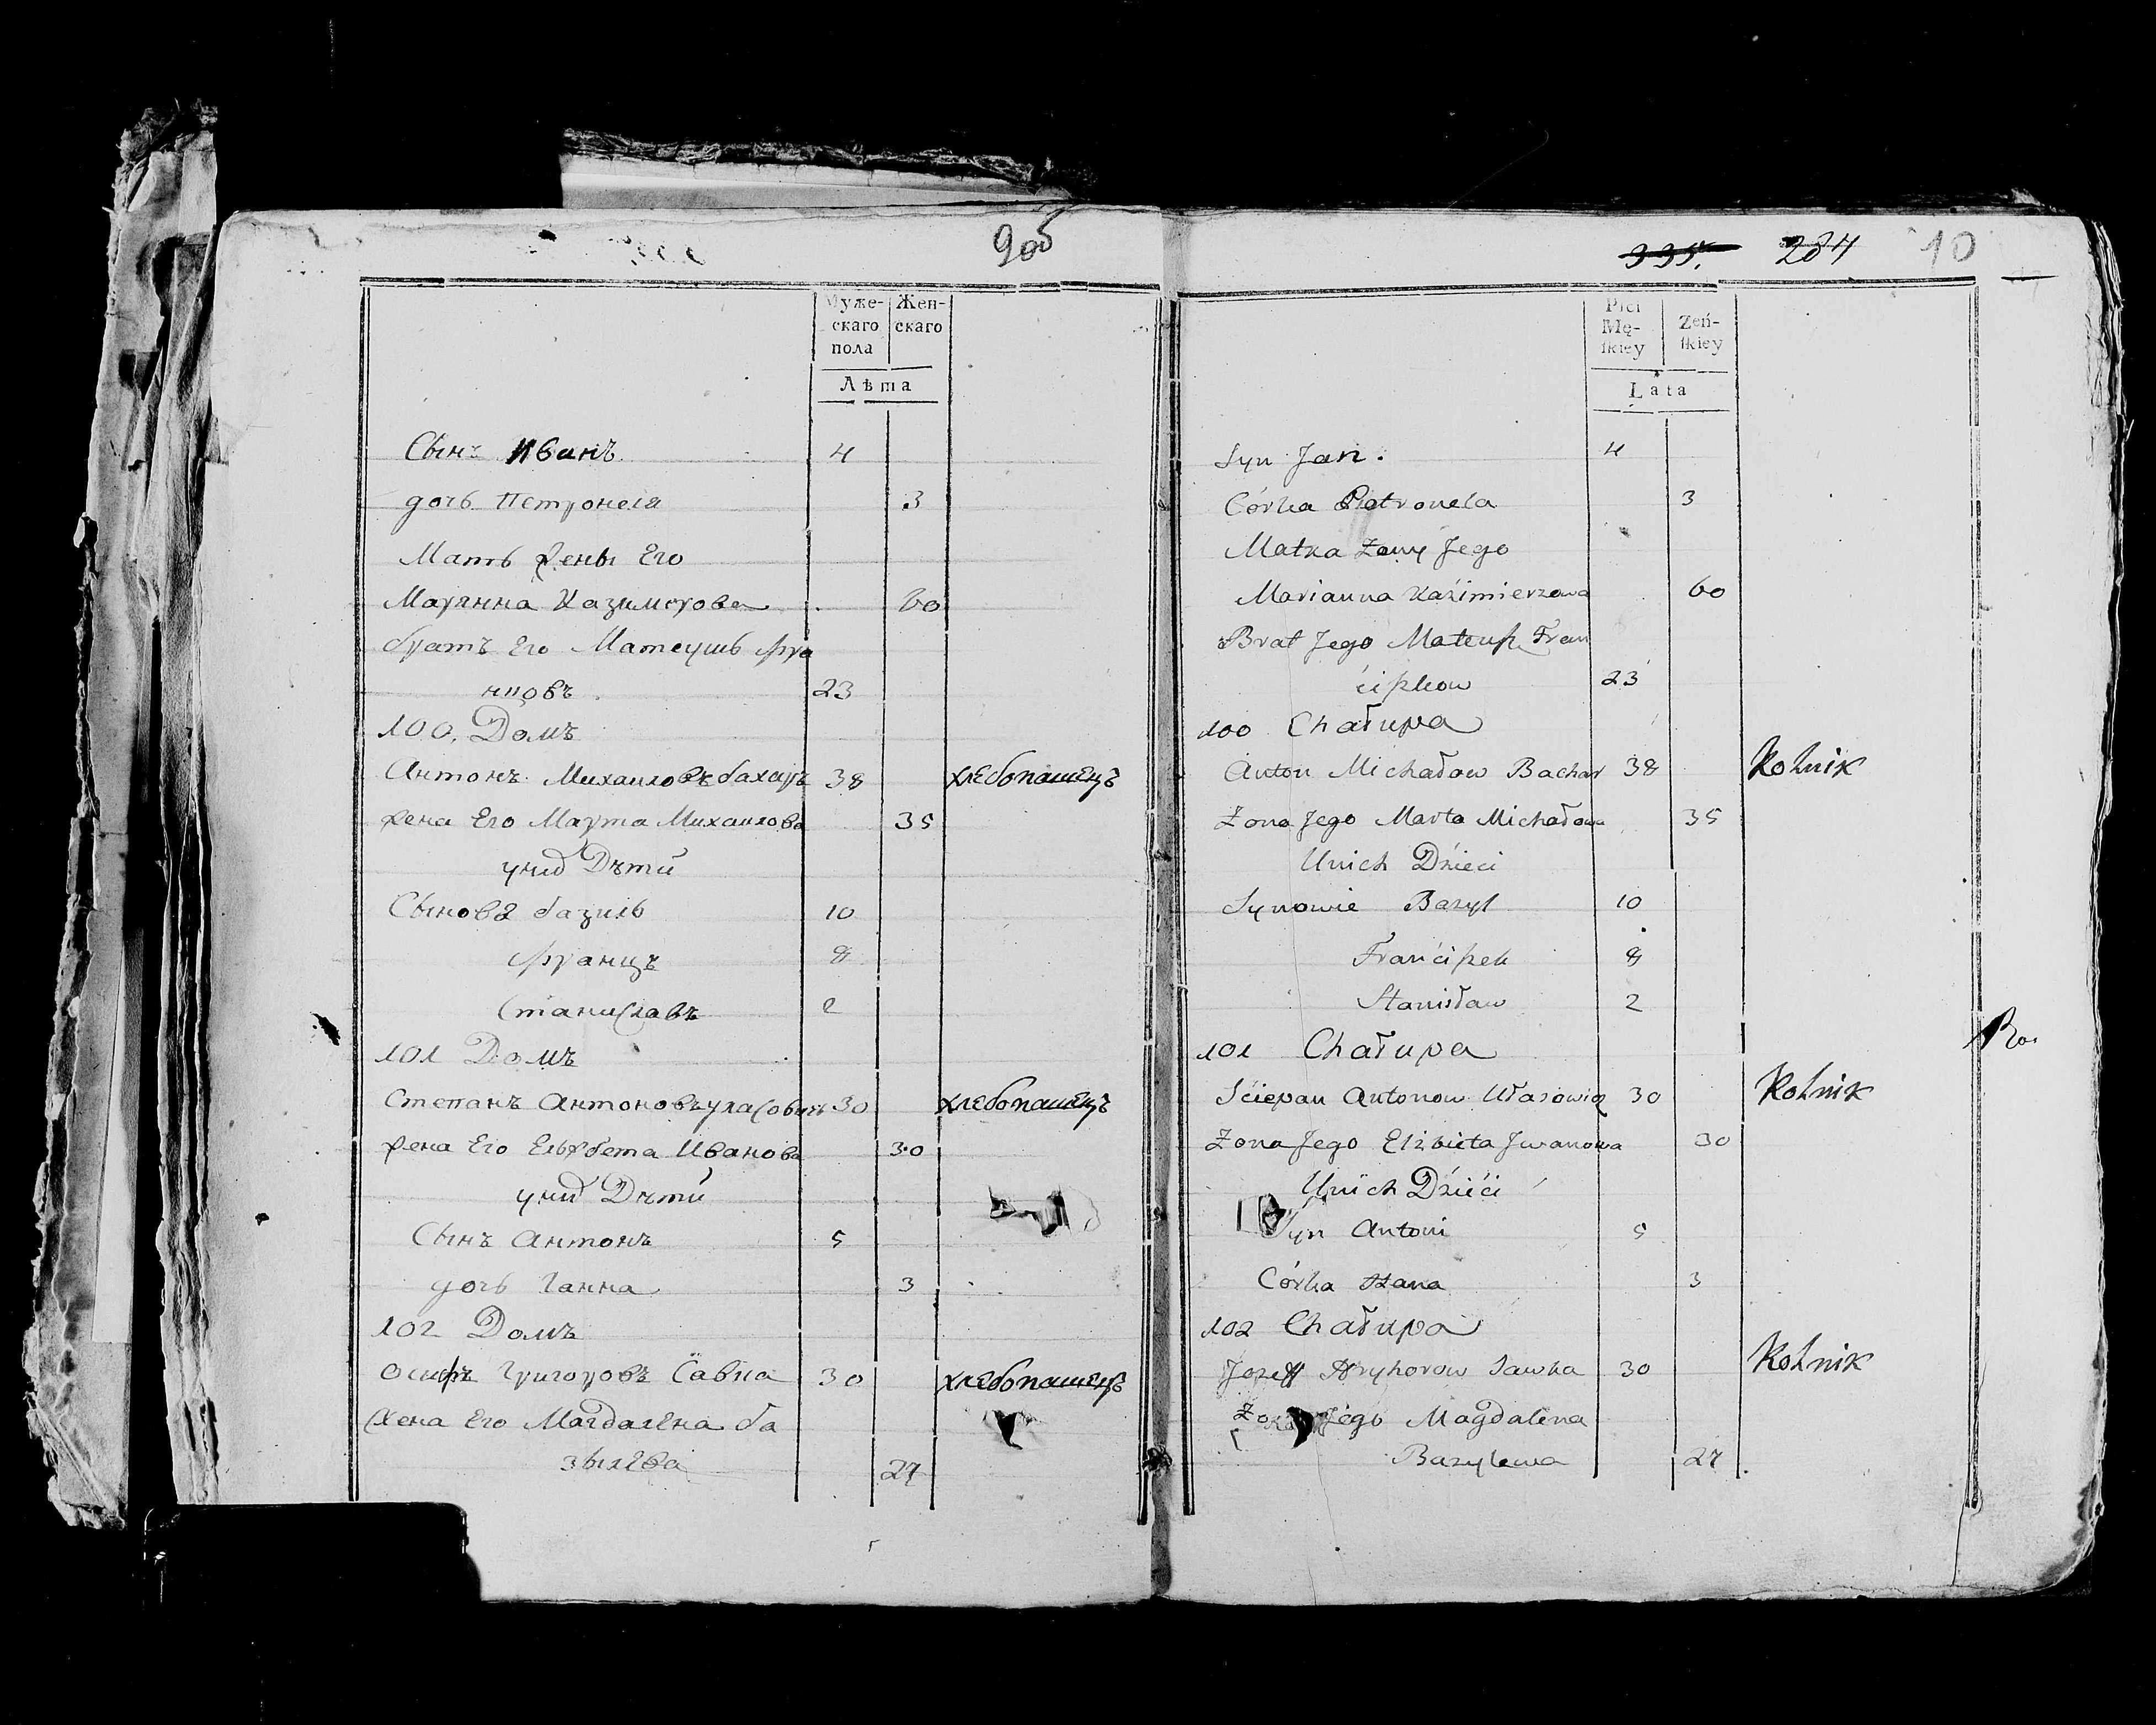 9об
Муже-
скаго
пола
Жен-
скаго
Лѣта
Сынъ Иванъ 4
дочь Петронеля 3
Мать жены Его
Марянна Казимерова 60
братъ Его Матеушъ Фра
нцовъ 23
100. Домъ
Антонъ Михаиловъ бахаръ 38 хлебопашецъ
жена Его Марта Михаилова 35
уних Дѣти
Сыновя базиль 10
Францъ 8
Станиславъ 2
101 Домъ
Степанъ Антоновъ уласовичъ 30 хлебопашецъ
жена Его Ельжбета Иванова 30
уних Дѣти
Сынъ Антонъ 5
дочь Ганна 3
102 Домъ
Осифъ Григоровъ Савка 30 хлебопашецъ
жена Его Магдалена ба
зылева 27
335. 284 10
Płci
Mę-
ſkiey
Zeń-
ſkiey
Lata
Syn Jan. 4
Córka Petronela 3
Matka Zony Jego
Marianna Kaźimierzowa 60
Brat Jego Mateuſz Fran
ćiſzkow 23
100 Chałupa
Anton Michałow Bachar 38 Rolnik
Zona Jego Marta Michałowa 35
Unich Dźieci
Synowie Bazyl 10
Franćiſzek 8
Stanisław 2
101 Chałupa
Ro.
Sćiepan Antonow Ułasowicz 30 Rolnik
Zona Jego Elżbieta Jwanowa 30
Unich Dźiéći
Syn Antoni 5
Córka Hana 3
102 Chałupa
Jozeff Hryhorow Sawka 30 Rolnik
Zona Jego Magdalena
Bazylewa 27.